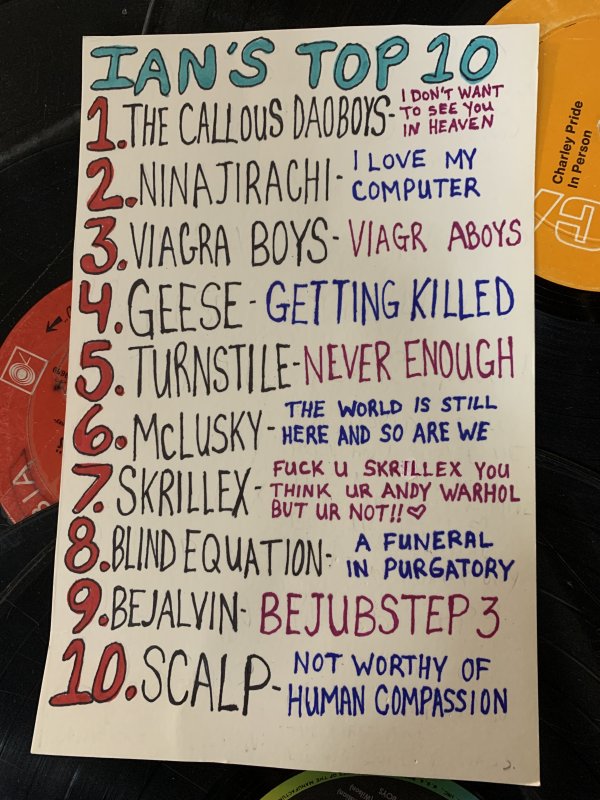 IAN'S TOP 10
1. THE CALLOUS DAOBOYS - I DON'T WANT
TO SEE YOU
IN HEAVEN
2. NINAJIRACHI - I LOVE MY
COMPUTER
3. VIAGRA BOYS - VIAGR ABOYS
4. GEESE - GETTING KILLED
5. TURNSTILE - NEVER ENOUGH
6. McLUSKY - THE WORLD IS STILL
HERE AND SO ARE WE
7. SKRILLEX - FUCK U SKRILLEX YOU
THINK UR ANDY WARHOL
BUT UR NOT!! ♡
8. BLIND EQUATION - A FUNERAL
IN PURGATORY
9. BEJALVIN - BEJUBSTEP 3
10. SCALP - NOT WORTHY OF
HUMAN COMPASSION
Charley Pride
In Person
BIA
OF THE MANUFACTUR
(Wilson)
BOYS